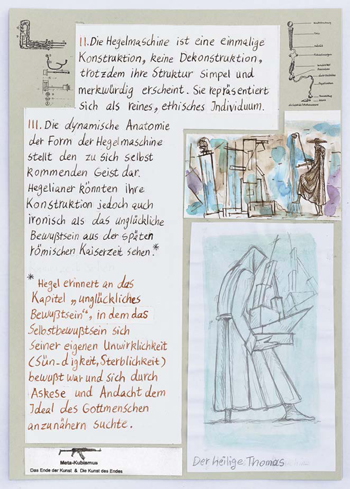 II. Die Hegelmaschine ist eine einmalige
Konstruktion, keine Dekonstruktion,
trotzdem ihre Struktur simpel und
merkwürdig erscheint. Sie repräsentiert
sich als reines, ethisches Individuum.
III. Die dynamische Anatomie
der Form der Hegelmaschine
stellt den zu sich selbst
kommenden Geist dar.
Hegelianer könnten ihre
Konstruktion jedoch auch
ironisch als das unglückliche
Bewußtsein aus der späten
römischen Kaiserzeit sehen.*
*
Hegel erinnert an das
Kapitel „unglückliches
Bewußtsein“, in dem das
Selbstbewußtsein sich
seiner eigenen Unwirklichkeit
(Sün-digkeit, Sterblichkeit)
bewußt war und sich durch
Askese und Andacht dem
Ideal des Gottmenschen
anzunähern suchte.
Meta-Kubismus
Das Ende der Kunst & Die Kunst des Endes
Der Heilige Thomas